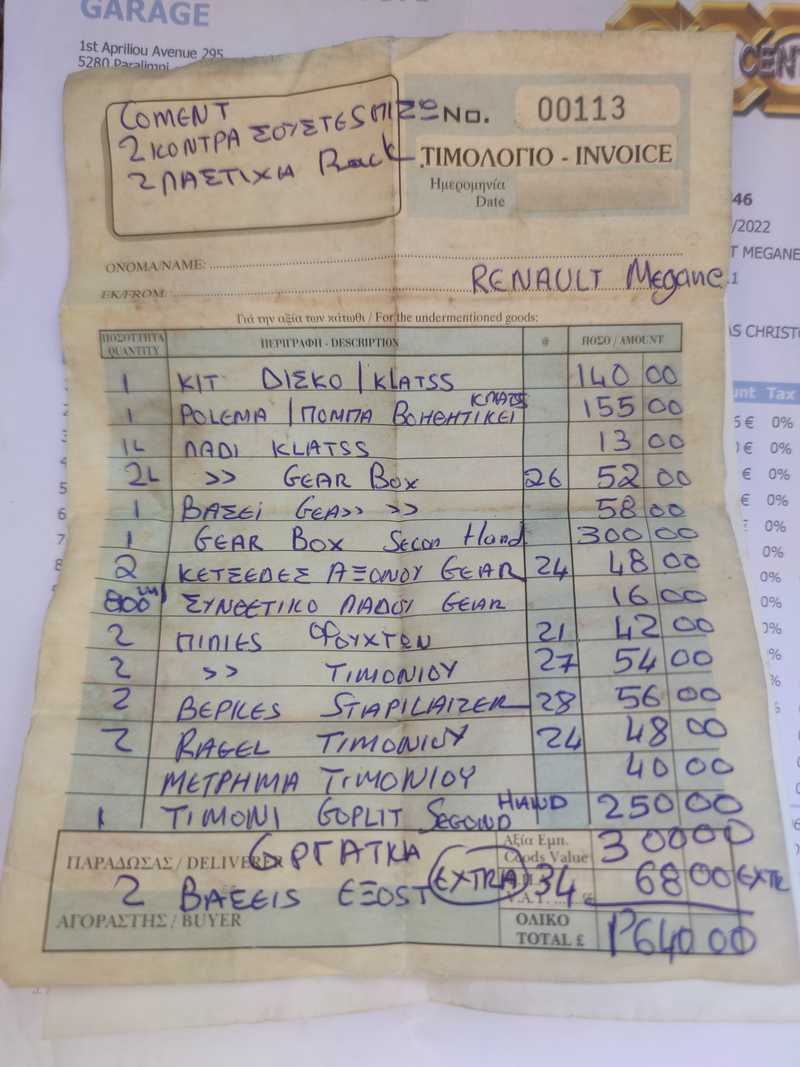 GARAGE
1st Apriliou Avenue 295
5280 Paralimni
CENT
COMENT
2 ΚΟΝΤΡΑ ΣΟΥΣΤΕS ΠΙΣΟ
2 ΛΑΣΤΙΧΙΑ Back
No. 00113
ΤΙΜΟΛΟΓΙΟ - INVOICE
Ημερομηνία
Date
46
/2022
T MEGANE
.1
AS CHRIST
ΟΝΟΜΑ/NAME:
RENAULT Megane
ΕΚ/FROM:
Για την αξία των κάτωθι / For the undermentioned goods:
ΠΟΣΟΤΗΤΑ QUANTITY ΠΕΡΙΓΡΑΦΗ - DESCRIPTION @ ΠΟΣΟ / AMOUNT
unt Tax
1 ΚΙΤ ΔΙΣΚΟ / KLATSS 140 00
1 ΡΟLΕΜΑ / ΠΟΜΠΑ ΒΟΗΘΗΤΙΚΕΙ ΚΛΑΤSS 155 00
1L ΛΑΔΙ KLATSS 13 00
2L >> GEAR Box 26 52 00
1 ΒΑΣΕΙ GEA>> >> 58 00
1 GEAR BOX Secon Hand 300 00
2 ΚΕΤΣΕΔΕΣ ΑΞΟΝΟΥ GEAR 24 48 00
800 ΣΥΝΘΕΤΙΚΟ ΛΑΔΟΥ GEAR 16 00
2 ΠΙΛΙΕS ΦΡΟΥΧΤΩΝ 21 42 00
2 >> ΤΙΜΟΝΙΟΥ 27 54 00
2 ΒΕΡΚΕS STAPILAIZER 28 56 00
2 RAGEL ΤΙΜΟΝΙΟΥ 24 48 00
ΜΕΤΡΗΜΑ ΤΙΜΟΝΙΟΥ 40 00
1 ΤΙΜΟΝΙ GOPLIT SEGOND HAND 250 00
ΕΡΓΑΤΚΑ Αξία Εμπ. Goods Value 300 00
ΠΑΡΑΔΩΣΑΣ / DELIVERER
2 ΒΑΣΕΙS ΕΞΟSΤ EXTRA 34 V.A.T. 68 00 EXTR
ΑΓΟΡΑΣΤΗΣ / BUYER
ΟΛΙΚΟ TOTAL £ 1640 00